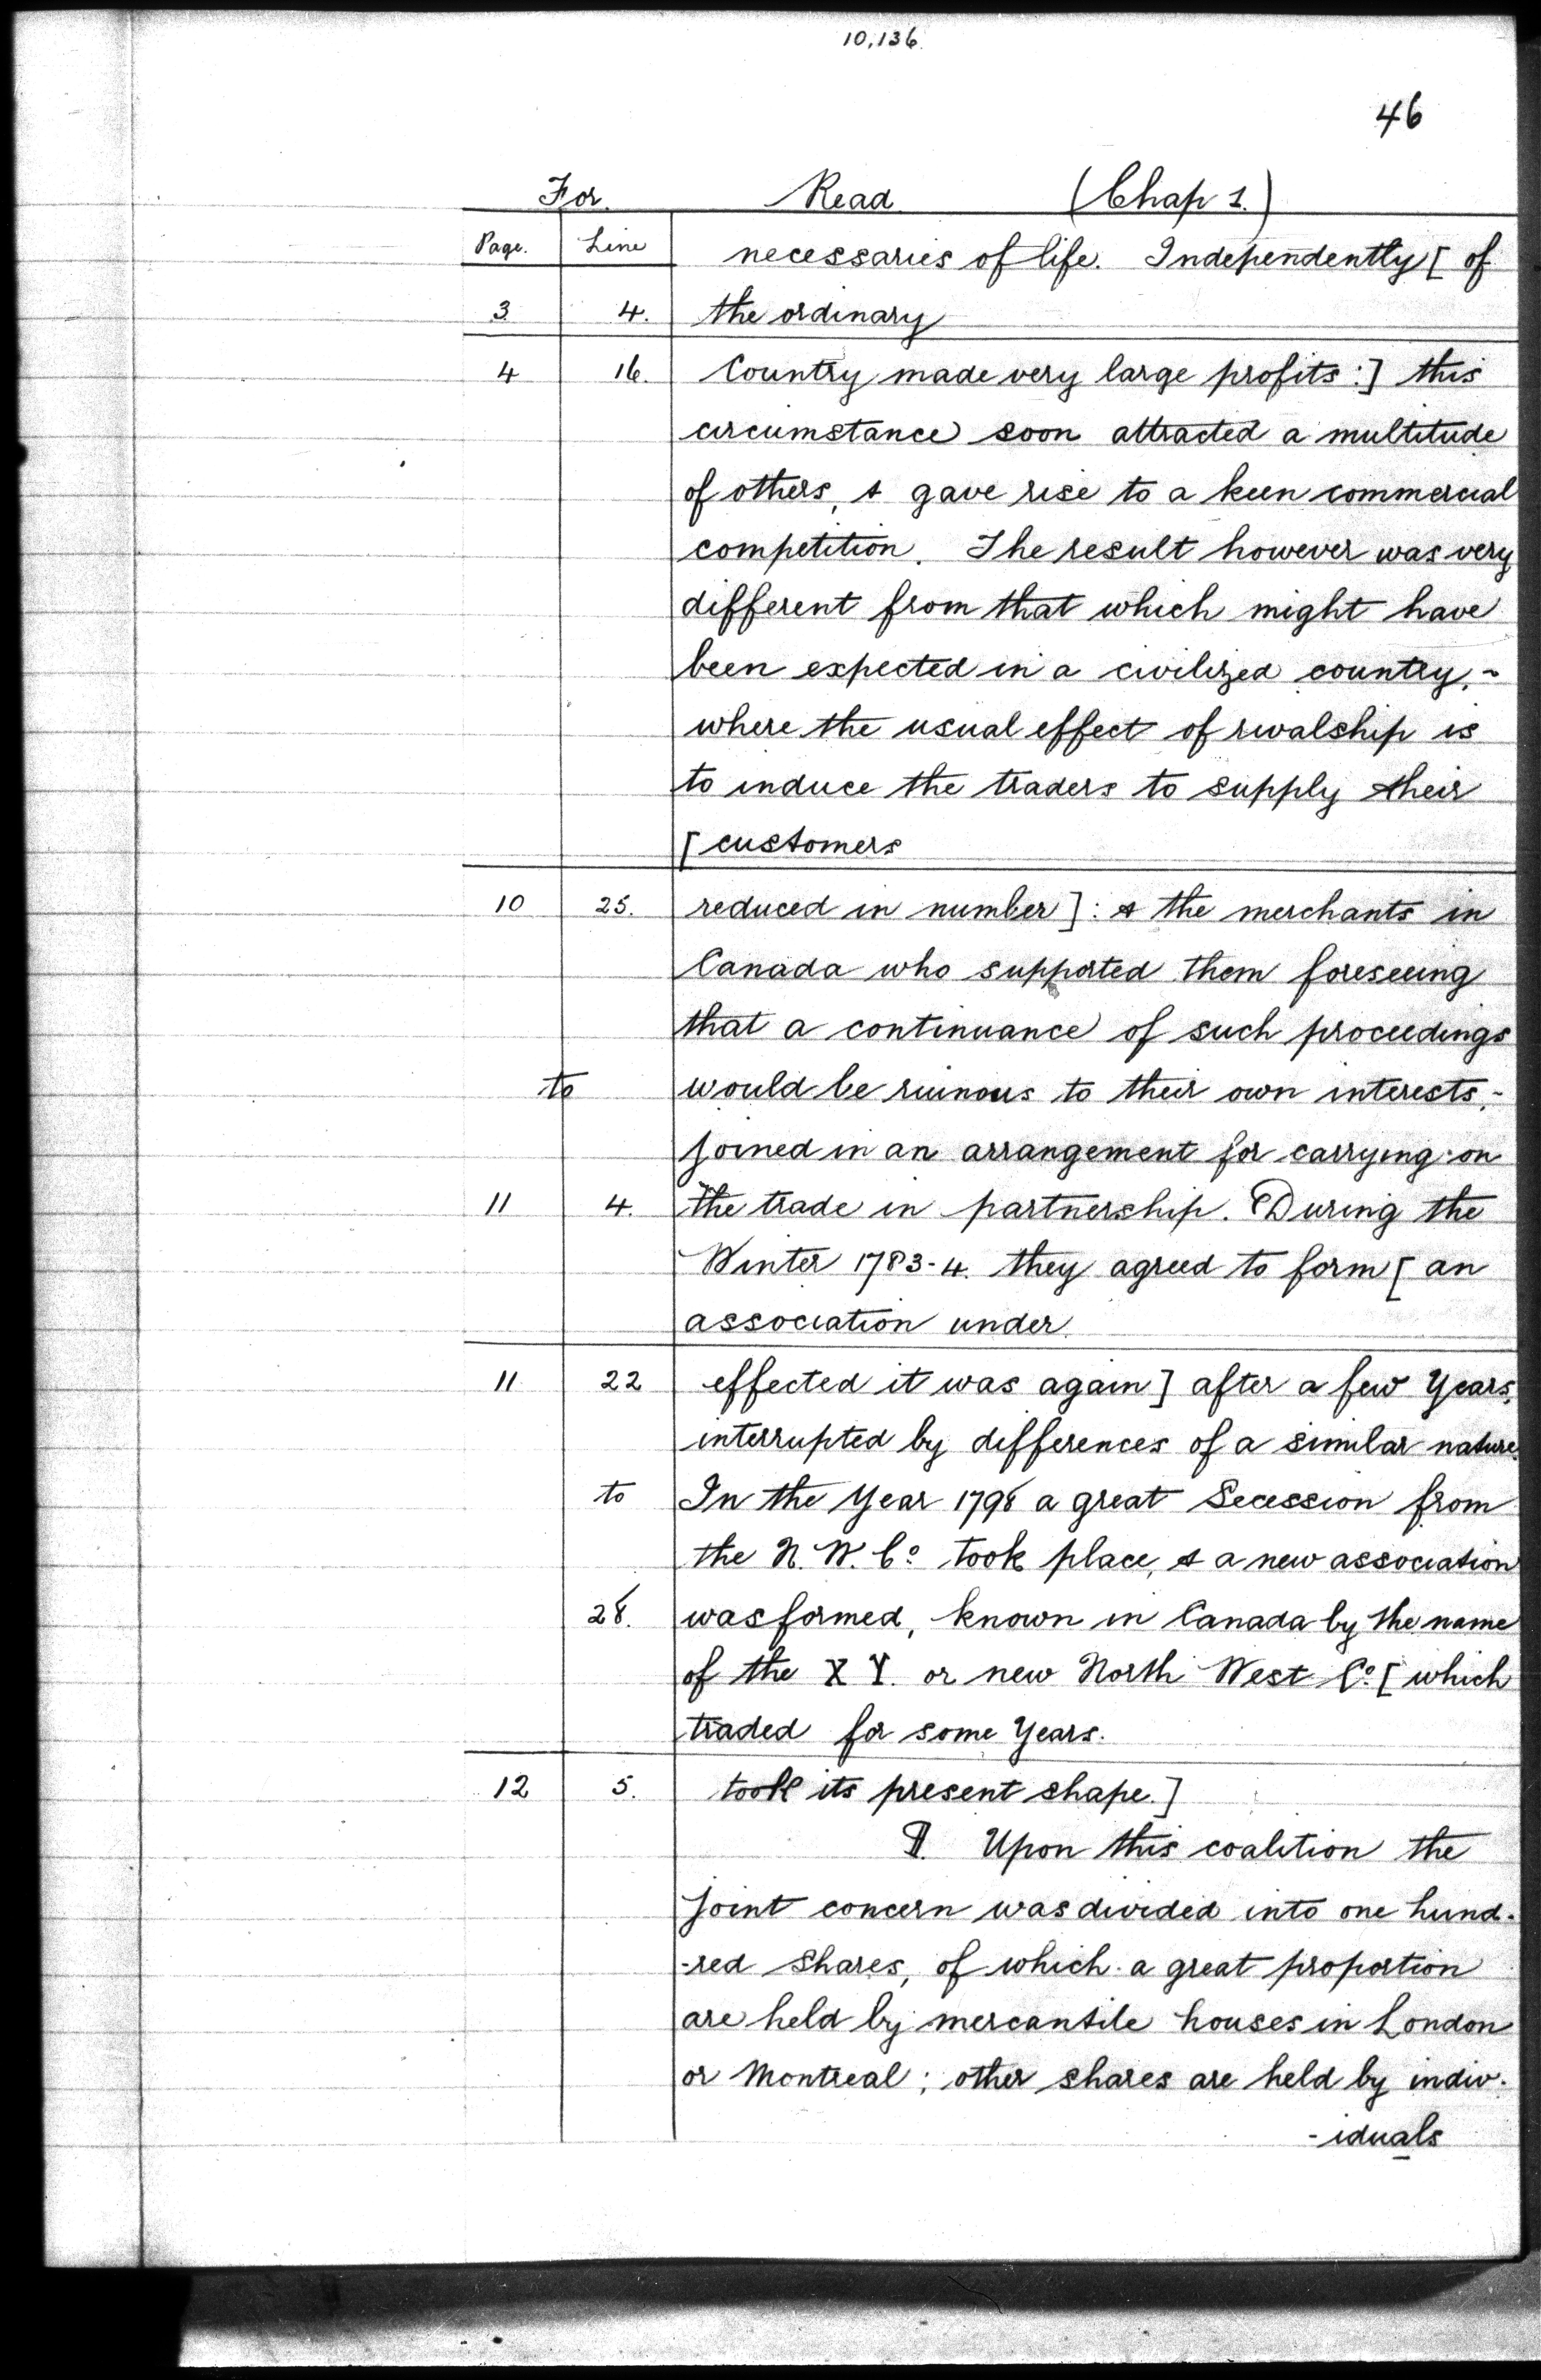 10,136.
46
For. Read (Chap 1.)
Page. Line necessaries of life. Independently [ of
3 4. the ordinary
4 16. Country made very large profits :] this
circumstance soon attracted a multitude
of others, & gave rise to a keen commercial
competition. The result however was very
different from that which might have
been expected in a civilized country, -
where the usual effect of rivalship is
to induce the traders to supply their
[ customers
10 25. reduced in number ] : & the merchants in
Canada who supported them foreseeing
that a continuance of such proceedings
to would be ruinous to their own interests, -
joined in an arrangement for carrying on
11 4. the trade in partnership. During the
Winter 1783-4. they agreed to form [ an
association under
11 22 effected it was again ] after a few Years,
interrupted by differences of a similar nature.
to In the Year 1798 a great Secession from
the N. W. Co. took place, & a new association
28. was formed, known in Canada by the name
of the X Y. or new North West Co. [ which
traded for some Years.
12 5. took its present shape. ]
¶. Upon this coalition the
joint concern was divided into one hund-
-red shares, of which a great proportion
are held by mercantile houses in London
or Montreal ; other shares are held by indiv-
-iduals